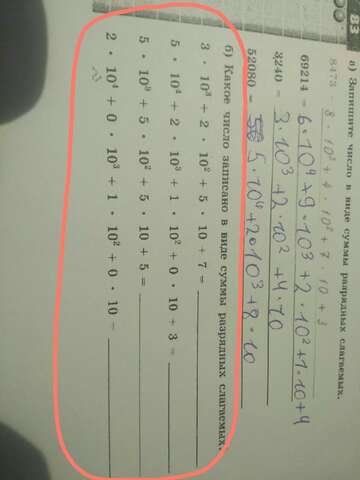 83
а) Запишите число в виде суммы разрядных слагаемых.
8473 = 8 · 10³ + 4 · 10² + 7 · 10 + 3
69214 = 6·10⁴+9·10³+2·10²+1·10+4
3240 = 3·10³+2·10²+4·10
52080 = 5·10⁴+2·10³+8·10
б) Какое число записано в виде суммы разрядных слагаемых.
3 · 10³ + 2 · 10² + 5 · 10 + 7 =
5 · 10⁴ + 2 · 10³ + 1 · 10² + 0 · 10 + 3 =
5 · 10³ + 5 · 10² + 5 · 10 + 5 =
2 · 10⁴ + 0 · 10³ + 1 · 10² + 0 · 10 =